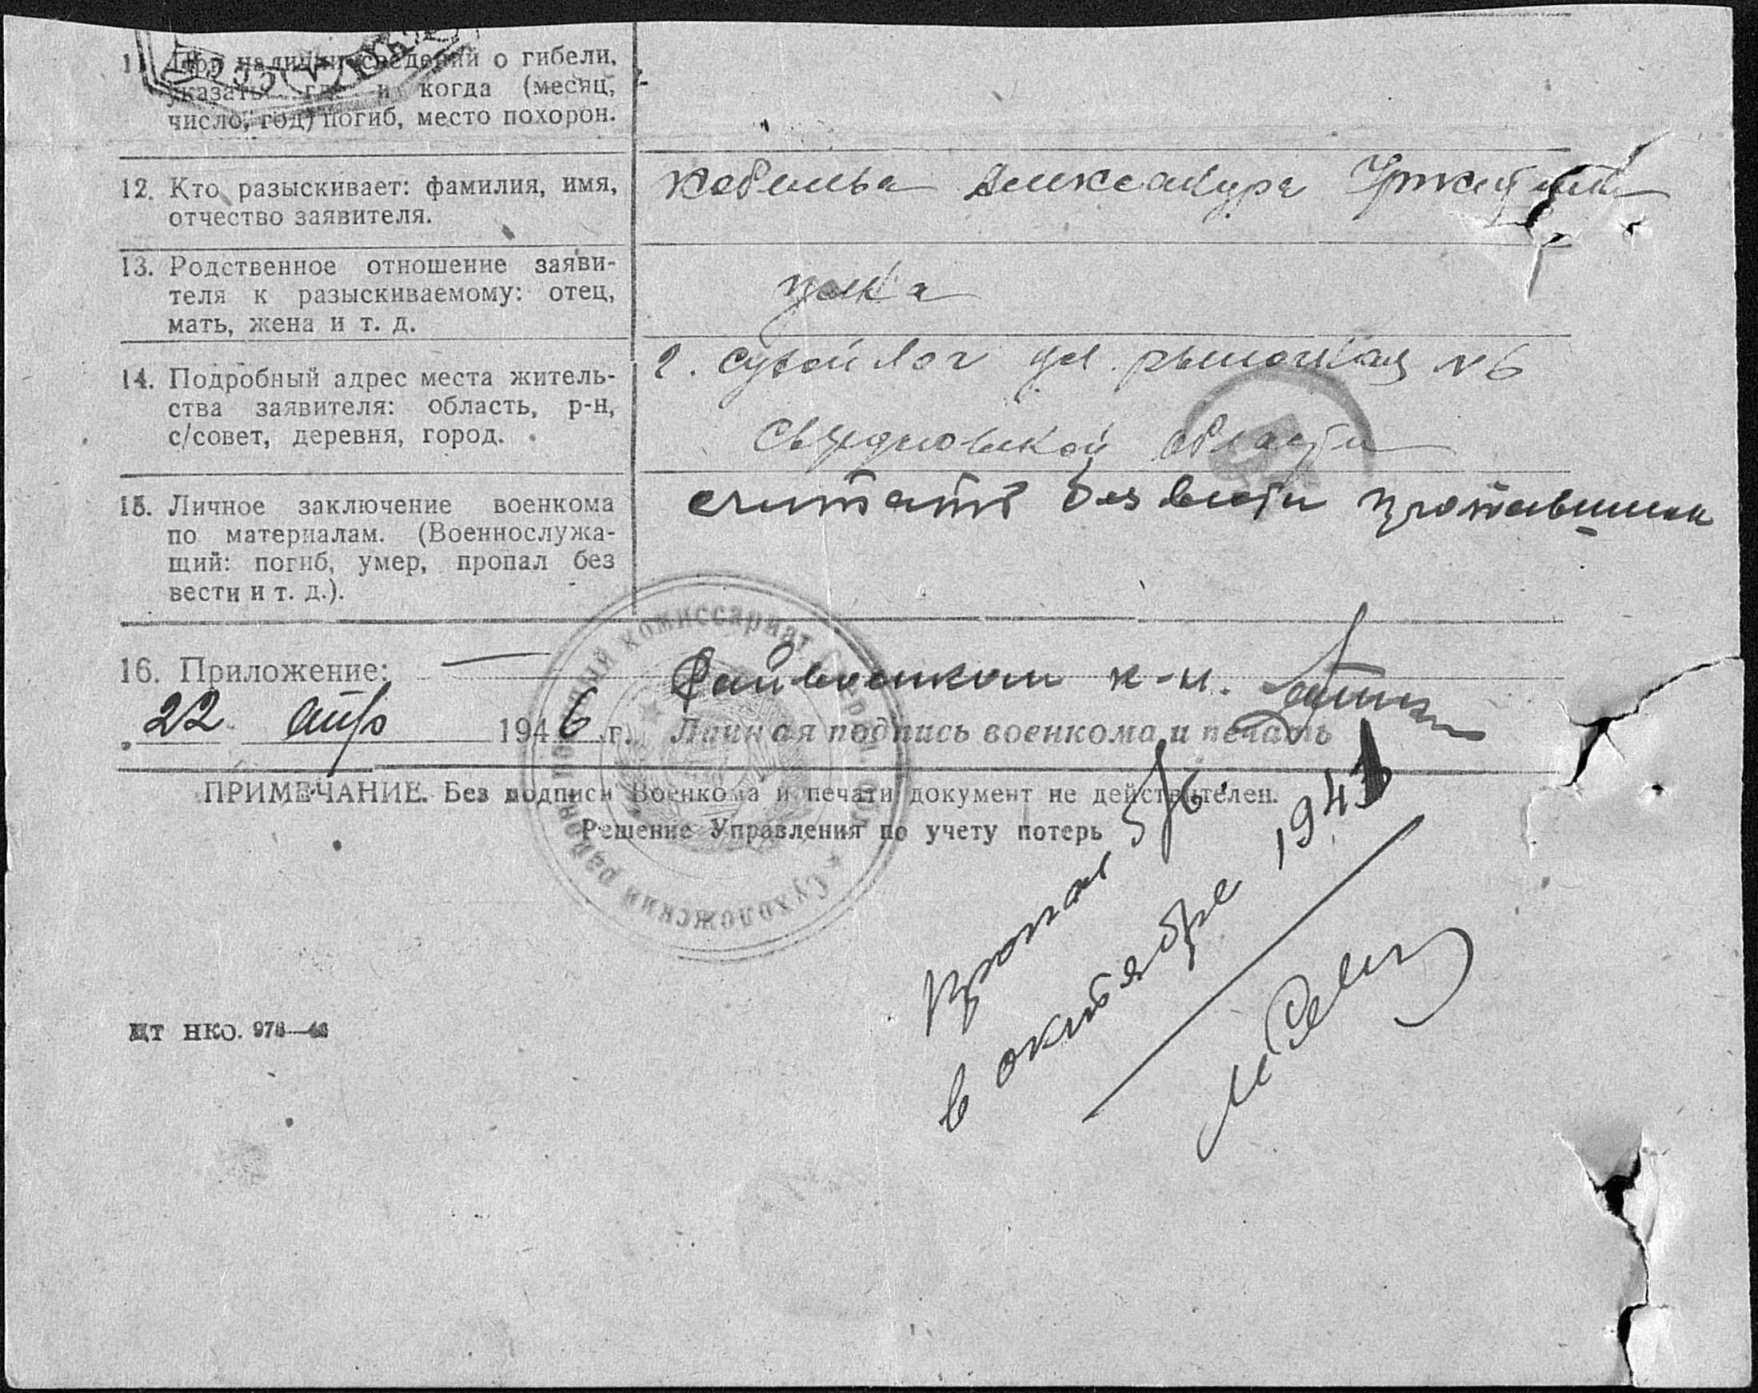 11. При наличии сведений о гибели,
указать где и когда (месяц,
число, год) погиб, место похорон.
12. Кто разыскивает: фамилия, имя,
отчество заявителя.
Александра
13. Родственное отношение заяви-
теля к разыскиваемому: отец,
мать, жена и т. д.
14. Подробный адрес места житель-
ства заявителя: область, р-н,
с/совет, деревня, город.
г. Сухой лог ул. Рыночная №6
Свердловской области
15. Личное заключение военкома
по материалам. (Военнослужа-
щий: погиб, умер, пропал без
вести и т. д.).
считать без вести пропавшим
16. Приложение:
Райвоенком к-н.
22 апр 1946 г. Личная подпись военкома и печать
ПРИМЕЧАНИЕ. Без подписи Военкома и печати документ не действителен.
Решение Управления по учету потерь
пропал б/в
в октябре 1941
ЦТ НКО. 976—46
Сухоложский районный военный комиссариат